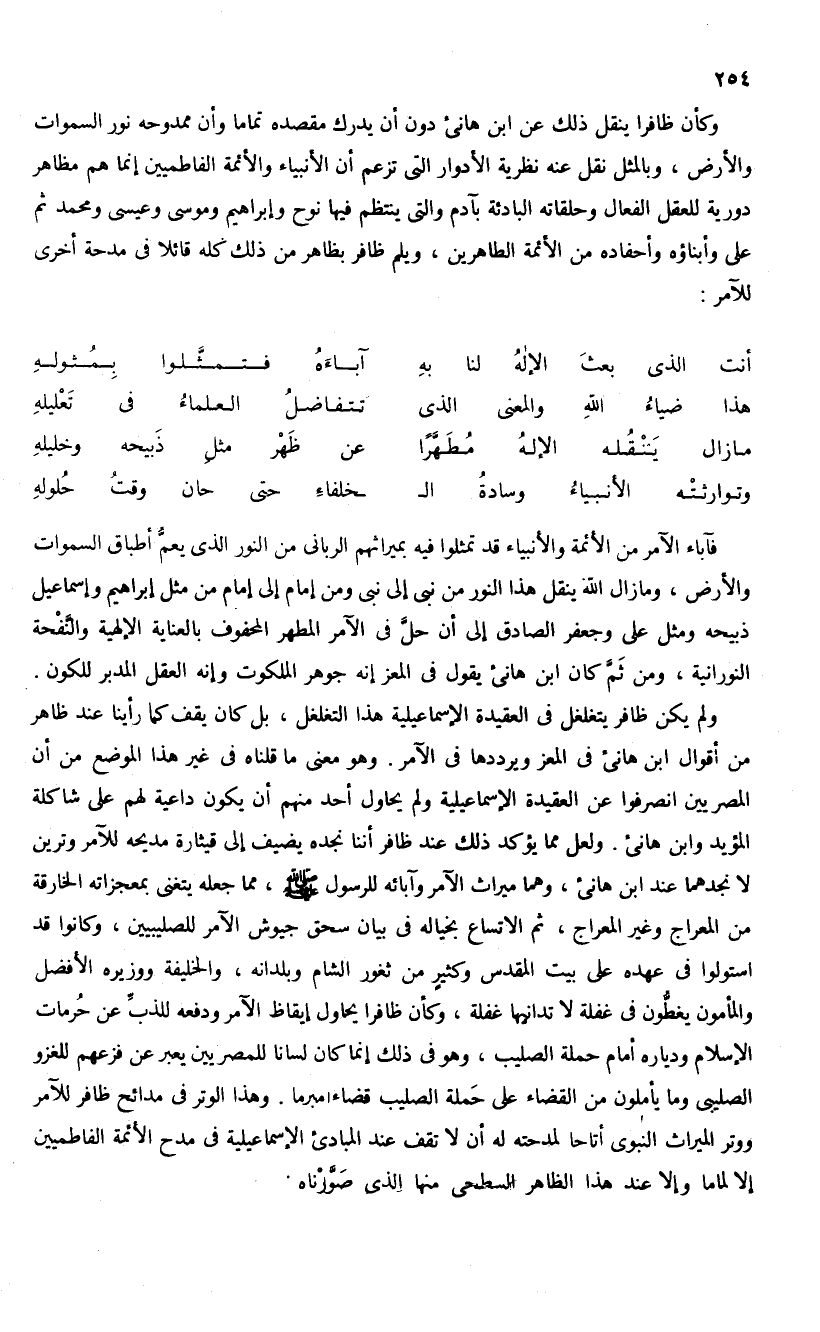 ٢٥٤
وكأن ظافرا ينقل ذلك عن ابن هانئ دون أن يدرك مقصده تماما وأن ممدوحه نور السموات
والأرض ، وبالمثل نقل عنه نظرية الأدوار التى تزعم أن الأنبياء والأئمة الفاطميين إنما هم مظاهر
دورية للعقل الفعال وحلقاته البادئة بآدم والتى ينتظم فيها نوح وإبراهيم وموسى وعيسى ومحمد ثم
على وأبناؤه وأحفاده من الأئمة الطاهرين ، ويلم ظافر بظاهر من ذلك كله قائلا فى مدحة أخرى
للآمر :
أنت الذى بعثَ الإلٰهُ لنا بهِ آبـاءَهُ فـتـمـثَّـلوا بِـمُـثـولـهِ
هذا ضياءُ اللهِ والمعنى الذى تتفاضلُ العلماءُ فى تَعْليلهِ
مازال يَنْقُله الإلهُ مُطَهَّرًا عن ظَهْر مثلِ ذَبيحه وخليلهِ
وتوارثتْه الأنبياءُ وسادةُ الـ ـخلفاءِ حتى حان وقتُ حُلولهِ
فآباء الآمر من الأئمة والأنبياء قد تمثلوا فيه بميراثهم الربانى من النور الذى يعمُّ أطباق السموات
والأرض ، ومازال الله ينقل هذا النور من نبى إلى نبى ومن إمام إلى إمام من مثل إبراهيم وإسماعيل
ذبيحه ومثل على وجعفر الصادق إلى أن حلَّ فى الآمر المطهر المحفوف بالعناية الإلهية والنَّفْحة
النورانية ، ومن ثَمَّ كان ابن هانئ يقول فى المعز إنه جوهر الملكوت وإنه العقل المدبر للكون .
ولم يكن ظافر يتغلغل فى العقيدة الإسماعيلية هذا التغلغل ، بل كان يقف كما رأينا عند ظاهر
من أقوال ابن هانئ فى المعز ويرددها فى الآمر . وهو معنى ما قلناه فى غير هذا الموضع من أن
المصريين انصرفوا عن العقيدة الإسماعيلية ولم يحاول أحد منهم أن يكون داعية لهم على شاكلة
المؤيد وابن هانئ . ولعل مما يؤكد ذلك عند ظافر أننا نجده يضيف إلى قيثارة مديحه للآمر وترين
لا نجدهما عند ابن هانئ ، وهما ميراث الآمر وآبائه للرسول ﷺ ، مما جعله يتغنى بمعجزاته الخارقة
من المعراج وغير المعراج ، ثم الاتساع بخياله فى بيان سحق جيوش الآمر للصليبيين ، وكانوا قد
استولوا فى عهده على بيت المقدس وكثيرٍ من ثغور الشام وبلدانه ، والخليفة ووزيره الأفضل
والمأمون يغطُّون فى غفلة لا تدانيها غفلة ، وكأن ظافرا يحاول إيقاظ الآمر ودفعه للذبِّ عن حُرمات
الإسلام ودياره أمام حملة الصليب ، وهو فى ذلك إنما كان لسانا للمصريين يعبر عن فزعهم للغزو
الصليبى وما يأملون من القضاء على حَملة الصليب قضاء امبرما . وهذا الوتر فى مدائح ظافر للآمر
ووتر الميراث النبوى أتاحا لمدحته له أن لا تقف عند المبادئ الإسماعيلية فى مدح الأئمة الفاطميين
إلا لماما وإلا عند هذا الظاهر السطحى منها الذى صَوَّرْناه .